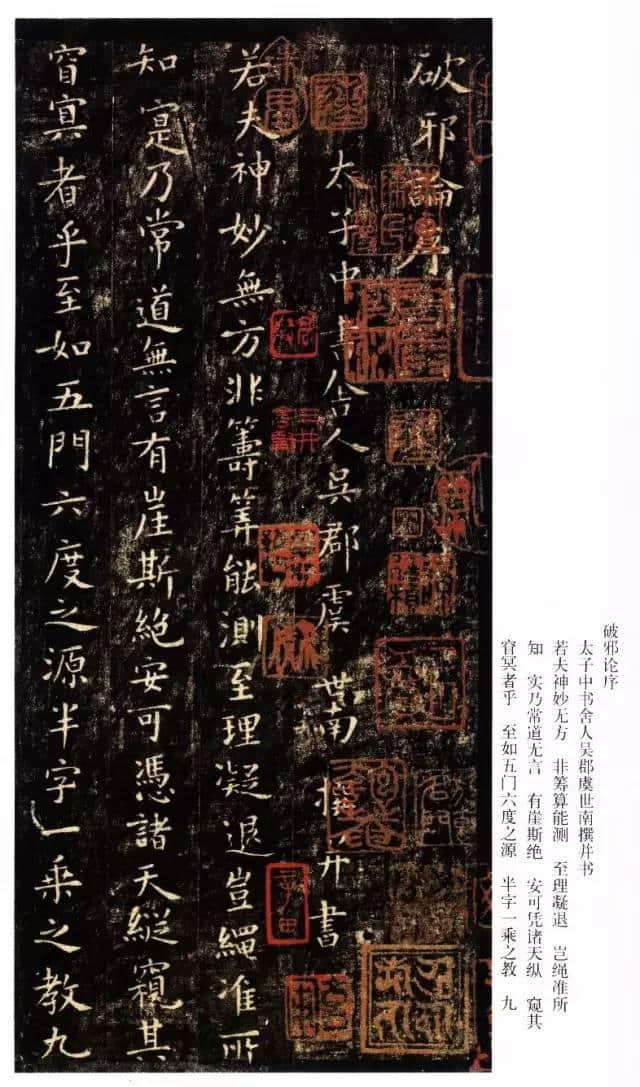 破邪论序
太子中书舍人吴郡虞世南撰并书
若夫神妙无方 非筹算能测 至理凝退 岂绳准所
知 实乃常道无言 有崖斯绝 安可凭诸天纵 窥其
窅冥者乎 至如五门六度之源 半字一乘之教 九
破邪論序
太子中書舍人吳郡虞世南撰并書
若夫神妙無方非籌筭能測至理凝退豈繩准所
知寔乃常道無言有崖斯絕安可憑諸天縱窺其
窅㝠者乎至如五門六度之源半字一乘之教九